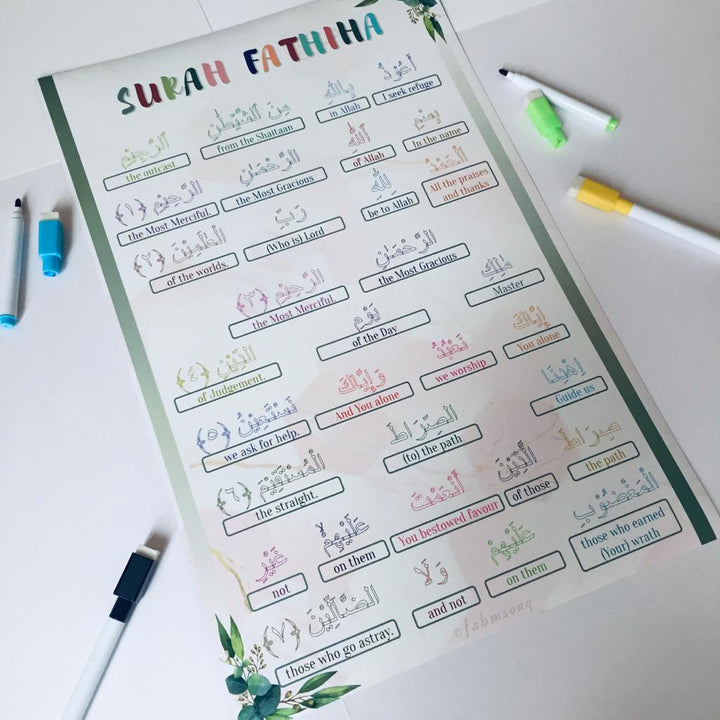 SURAH FATHIHA
أَعُوْذُ بِاللَّهِ مِنَ الشَّيْطٰنِ الرَّجِيْمِ
I seek refuge in Allah from the Shaitaan the outcast
بِسْمِ اللَّهِ الرَّحْمٰنِ الرَّحِيْمِ ﴿١﴾
In the name of Allah the Most Gracious the Most Merciful.
الْحَمْدُ لِلَّهِ رَبِّ الْعٰلَمِيْنَ ﴿٢﴾
All the praises and thanks be to Allah (Who is) Lord of the worlds.
الرَّحْمٰنِ الرَّحِيْمِ ﴿٣﴾
the Most Gracious the Most Merciful.
مٰلِكِ يَوْمِ الدِّيْنِ ﴿٤﴾
Master of the Day of Judgement.
إِيَّاكَ نَعْبُدُ وَإِيَّاكَ نَسْتَعِيْنُ ﴿٥﴾
You alone we worship And You alone we ask for help.
اهْدِنَا الصِّرَاطَ الْمُسْتَقِيْمَ ﴿٦﴾
Guide us (to) the path the straight.
صِرَاطَ الَّذِيْنَ أَنْعَمْتَ عَلَيْهِمْ غَيْرِ
the path of those You bestowed favour on them not
الْمَغْضُوْبِ عَلَيْهِمْ وَلَا الضَّالِّيْنَ ﴿٧﴾
those who earned (Your) wrath on them and not those who go astray.
©fabmsouq